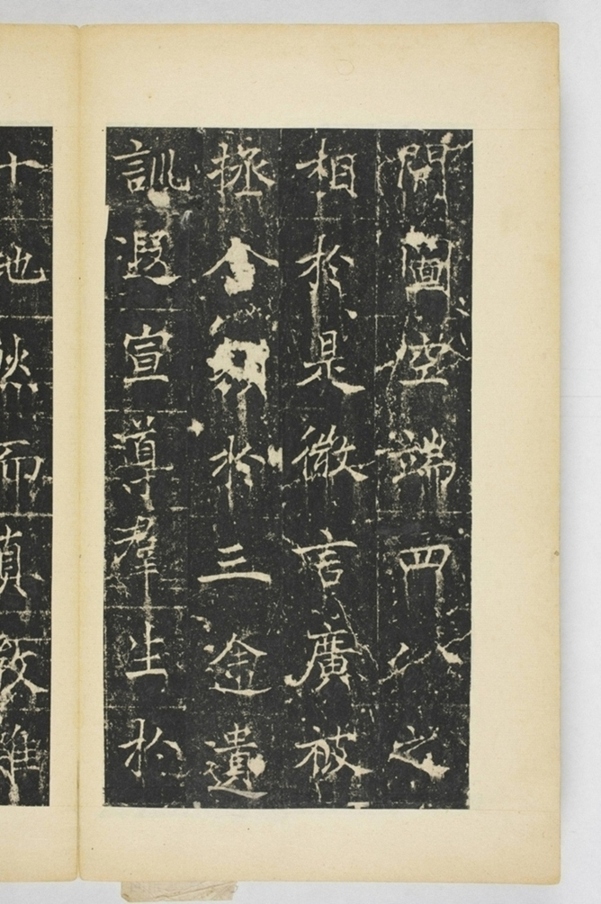 開圖空端四八之
相於是微言廣被
拯含類於三途遺
訓遐宣導羣生於
十地然而真教難